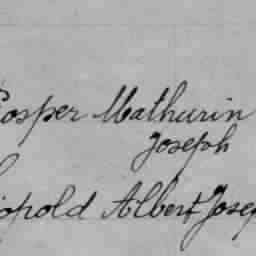 Prosper Mathurin
Joseph
Léopold Albert Joseph